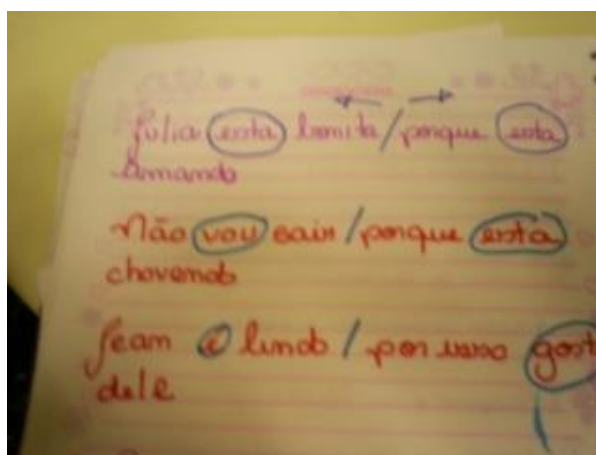 Júlia esta bonita / porque esta
amando
Não vou sair / porque está
chovendo
Jean é lindo / por isso gost
dele